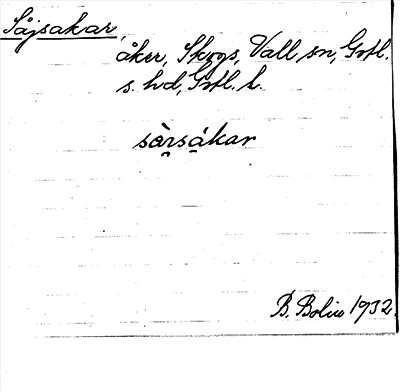 Såjsakar,
åker, Skogs, Vall sn, Gotl.
s. hd, Gotl. l.
sàrsákar
B. Bolin 1932.